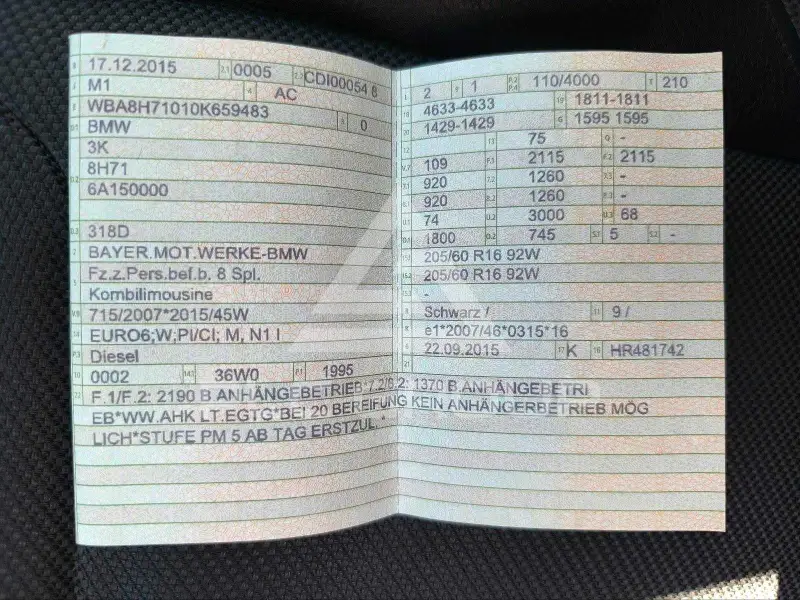 B 17.12.2015 2.1 0005 2.2 CDI00054 8
J M1 4 AC
E WBA8H71010K659483 3 0
D.1 BMW
D.2 3K
8H71
6A150000
D.3 318D
2 BAYER.MOT.WERKE-BMW
5 Fz.z.Pers.bef.b. 8 Spl.
Kombilimousine
V.9 715/2007*2015/45W
14 EURO6;W;PI/CI; M, N1 I
P.3 Diesel
10 0002 14.1 36W0 P.1 1995
L 2 9 1 P.2 P.4 110/4000 T 210
18 4633-4633 19 1811-1811
20 1429-1429 G 1595 1595
12 - 13 75 Q -
V.7 109 F.1 2115 F.2 2115
7.1 920 7.2 1260 7.3 -
8.1 920 8.2 1260 8.3 -
U.1 74 U.2 3000 U.3 68
O.1 1800 O.2 745 S.1 5 S.2 -
15.1 205/60 R16 92W
15.2 205/60 R16 92W
15.3 -
R Schwarz / 11 9 /
K e1*2007/46*0315*16
6 22.09.2015 17 K 16 HR481742
21
22 F.1/F.2: 2190 B.ANHÄNGEBETRIEB*7.2/8.2: 1370 B.ANHÄNGEBETRI
EB*WW.AHK LT.EGTG*BEI 20 BEREIFUNG KEIN ANHÄNGERBETRIEB MÖG
LICH*STUFE PM 5 AB TAG ERSTZUL.*